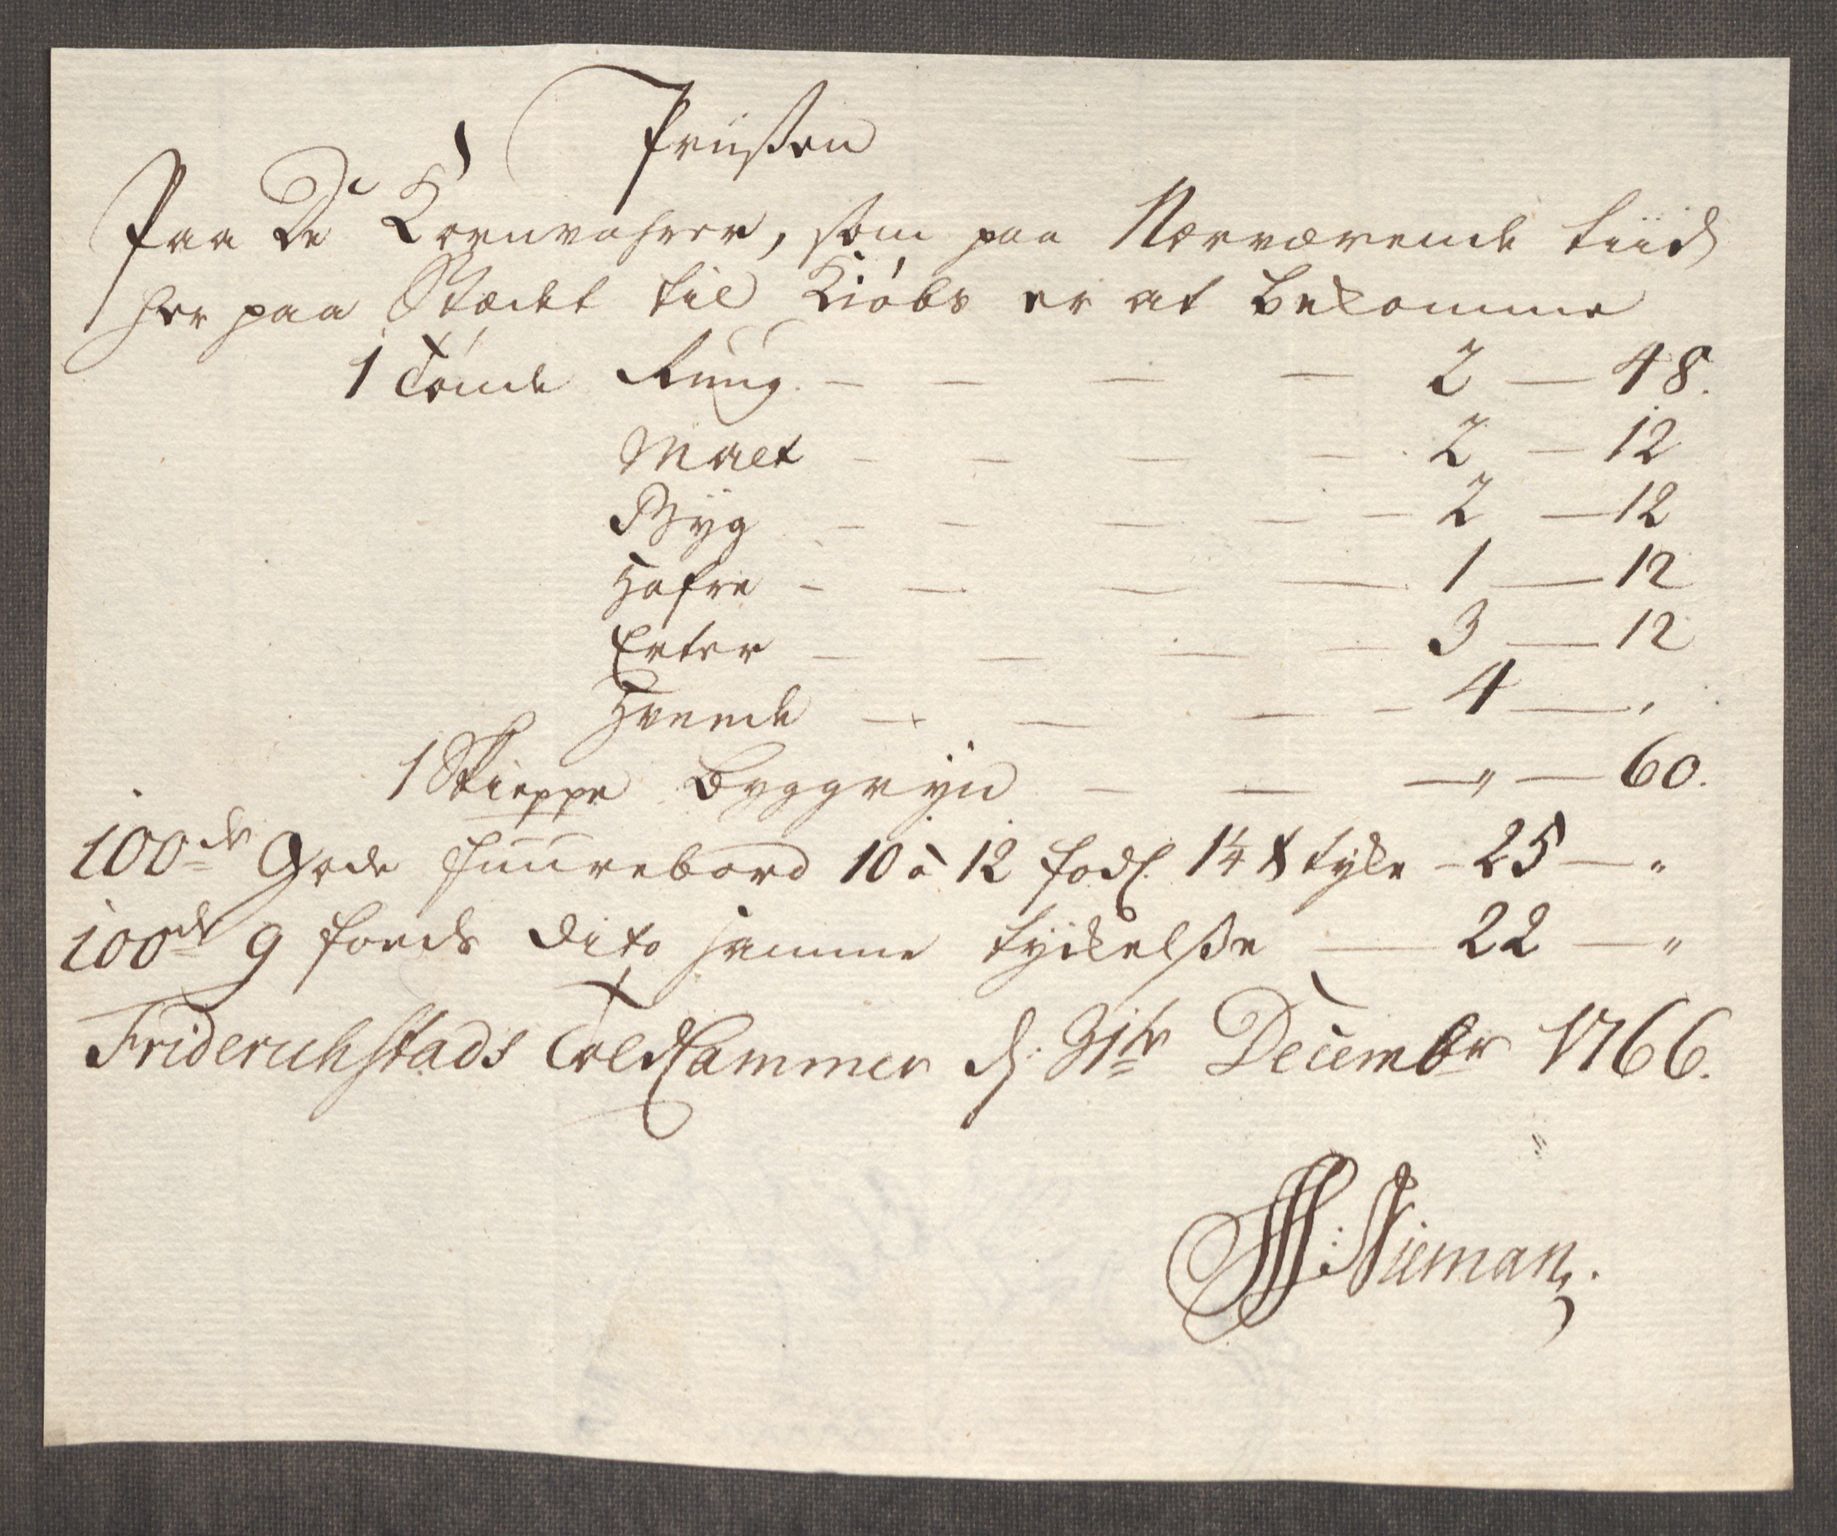 Priisen
Paa De Kornvahrer, som paa Nærværende tiid
her paa Stædet til Kiøbs er at bekomme
1 Tønde Rug — — — — 2 — 48.
Malt — — — — 2 — 12
Byg — — — — — 2 — 12
Hafre — — — — 1 — 12
Erter — — — — — 3 — 12
Hveede — — — — 4 — ,
1 Skieppe Byggryn — — — „ — 60.
100de Gode fuurebord 10 à 12 fod 1¼ tyke — 25 — „
100de 9 foeds dito samme tyckelse — 22 — „
Friderichstads Toldkammer d: 31te Decembr 1766.
Nieman